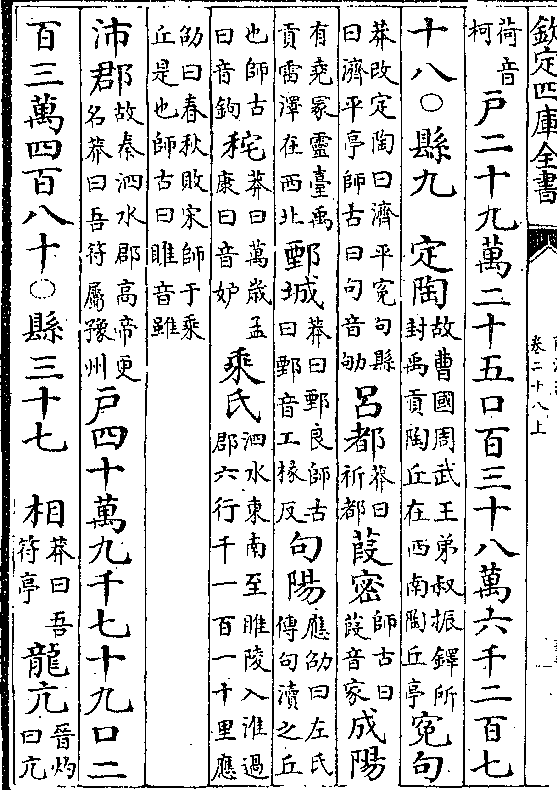 欽定四庫全書
卷二十八上
荷音柯戶二十九萬二十五口百三十八萬六千二百七
十八○縣九　定陶故曹國周武王弟叔振鐸所封禹貢陶丘在西南陶丘亭寃句
莽改定陶曰濟平寃句縣曰濟平亭師古曰句音劬呂都莽曰祈都葭宻師古曰葭音家成陽
有堯冢靈臺禹貢雷澤在西北鄄城莽曰鄄良師古曰鄄音工掾反句陽應劭曰左氏傳句瀆之丘
也師古曰音鉤秺莽曰萬歲孟康曰音妒乘氏泗水東南至睢陵入淮過郡六行千一百一十里應
劭曰春秋敗宋師于乘丘是也師古曰睢音雖
沛郡故秦泗水郡高帝更名莽曰吾符屬豫州戶四十萬九千七十九口二
百三萬四百八十○縣三十七　相莽曰吾符亭龍亢晉灼曰亢